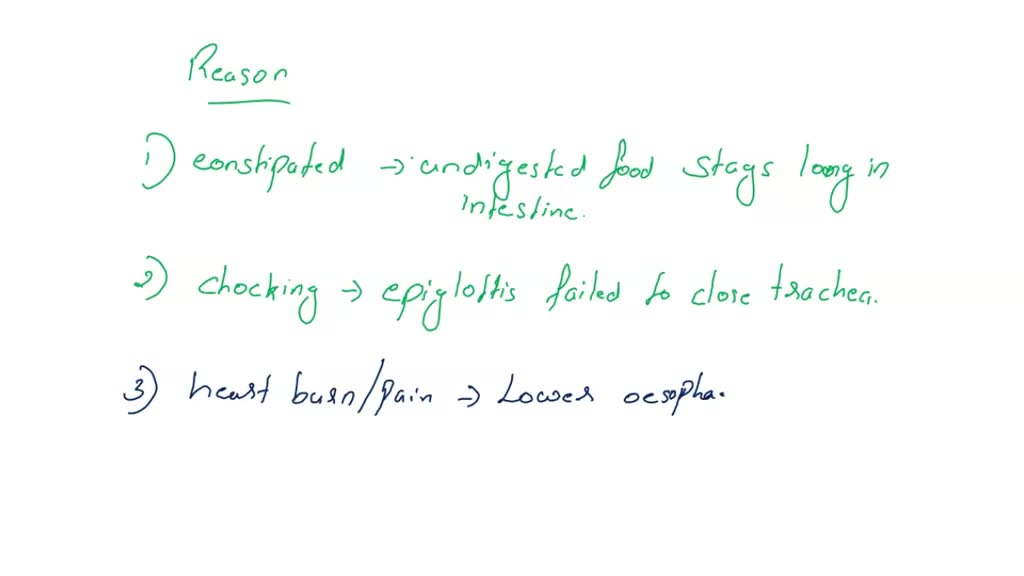 Reason
1) constipated → undigested food stays long in
intestine.
2) chocking → epiglottis failed to close trachea.
3) heart burn/pain → Lower oesopha.